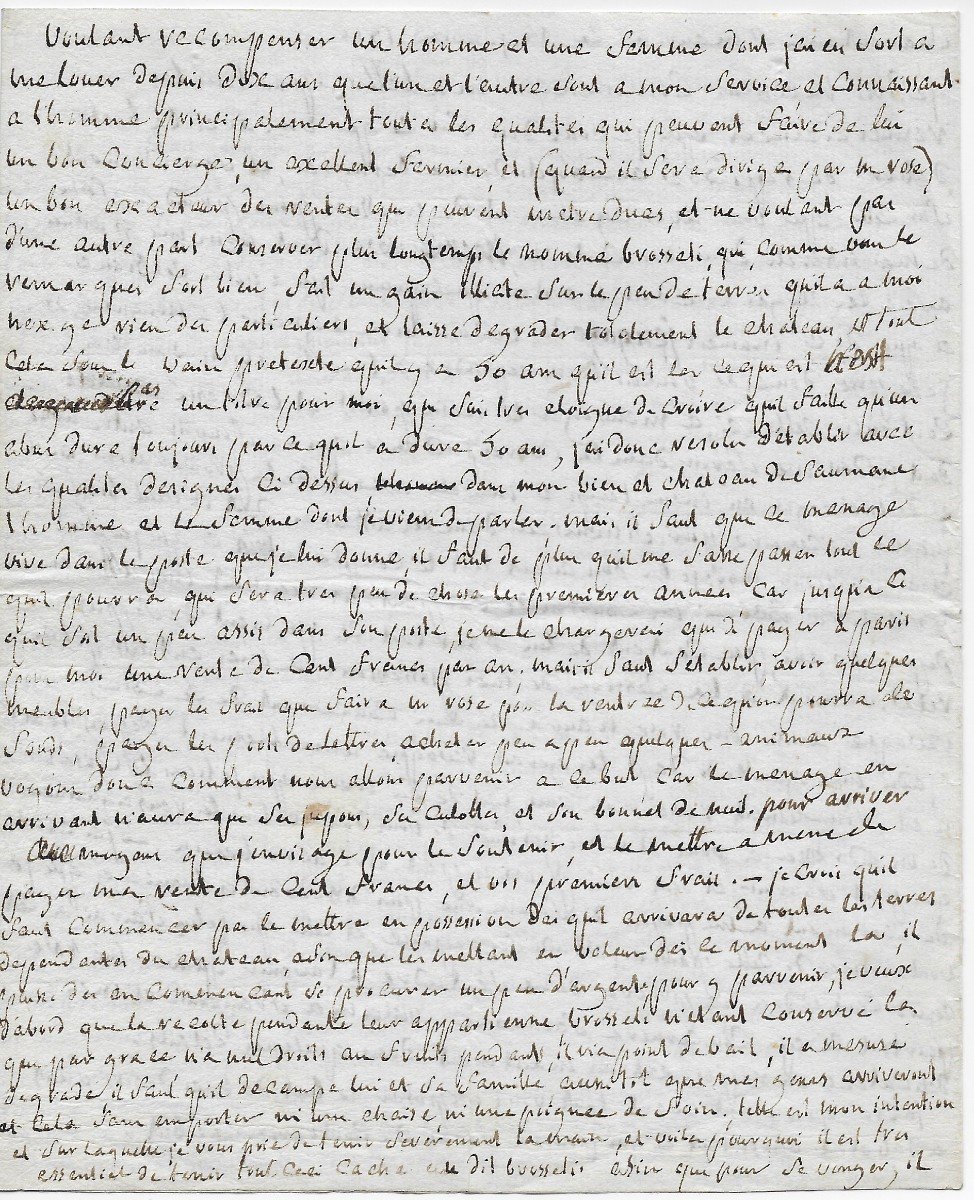 voulant recompenser un homme et une femme dont jai eu fort a
me louer depuis dix ans que lun et l'autre sont a mon service, et connaissant
a l'homme principalement toutes les qualités qui peuvent faire de lui
un bon concierge, un excellent fermier, et (quand il sera dirigé par mr rose)
un bon exacteur des rentes qui peuvent m'etre dues, et ne voulant pas
d'une autre part conserver plus longtemps le nommé brosseli, qui, comme vous le
remarques fort bien, fait un gain illicite sur le peu de terres quil a a moi
nexige rien des particuliers, et laisse degrader totalement le chateau et tout
cela sous le vain pretexte quil y a 50 ans quil est la ce qui est
pas un titre pour moi, qui suis tres eloigné de croire quil faille qu'un
abus dure toujours parce quil a duré 50 ans, jai donc resolu d'etablir avec
les qualités designés ci dessus, dans mon bien et chateau de Saumanes
l'homme et la femme dont je viens de parler. mais il faut que ce menage
vive dans le poste que je lui donne, il faut de plus quil me fasse passer tout ce
quil pourra, qui sera tres peu de chose les premieres années car jusqu'a ce
quil soit un peu assis dans son poste, je ne le chargerai que de payer a paris
pour moi une rente de cent francs par an. mais il faut s'etablir, avoir quelques
meubles, payer les frais que faira mr rose pour la rentrée de ce qu'on pourra de
fonds, payer les ports de lettres, acheter peu a peu quelques - animaux
voyons donc comment nous allons parvenir a ce but car le menage en
arrivant n'aura que ses jupons, ses culottes, et son bonnet de nuit. pour arriver
moyens que j'envisage pour le soutenir, et le mettre a meme de
payer ma rente de cent francs, et vos premiers frais. — je crois quil
faut commencer par le mettre en possession des quil arrivera de toutes les terres
dependantes du chateau, afin que les mettant en valeur des ce moment la, il
puisse des en commencant se procurer un peu d'argent, pour y parvenir, je veux
d'abord que la recolte pendante leur appartienne brosseli n'etant conservé la
que par grace n'a nul droits au fruits pendants, il n'a point de bail, il a mesusé
degradé il faut quil decampe lui et sa famille aussitot que mes gens arriveront
et cela sans emporter ni une chaise ni une poignée de foin, telle est mon intention
et sur laquelle je vous prie de tenir severement la main, et voila pourquoi il est tres
essentiel de tenir tout ceci caché au dit brosseli afin que pour se venger, il